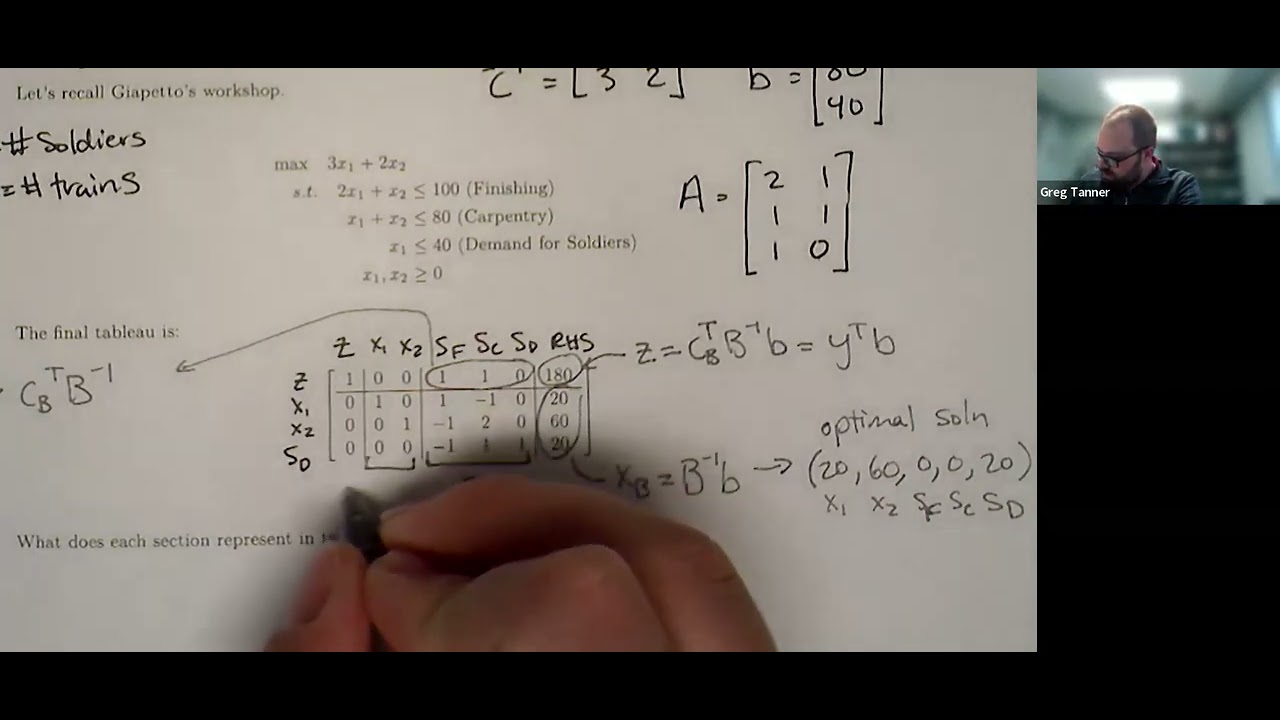 Let's recall Giapetto's workshop.
C^T = [3 2]
b = [80
40]
# Soldiers
= # trains
max 3x₁ + 2x₂
s.t. 2x₁ + x₂ ≤ 100 (Finishing)
x₁ + x₂ ≤ 80 (Carpentry)
x₁ ≤ 40 (Demand for Soldiers)
x₁, x₂ ≥ 0
A = [2 1
1 1
1 0]
Greg Tanner
The final tableau is:
C_B^T B^-1
Z X₁ X₂ S_F S_C S_D RHS
Z 1 0 0 1 1 0 180
X₁ 0 1 0 1 -1 0 20
X₂ 0 0 1 -1 2 0 60
S_D 0 0 0 -1 1 1 20
Z = C_B^T B^-1 b = y^T b
X_B = B^-1 b → (20, 60, 0, 0, 20)
optimal soln
X₁ X₂ S_F S_C S_D
What does each section represent in